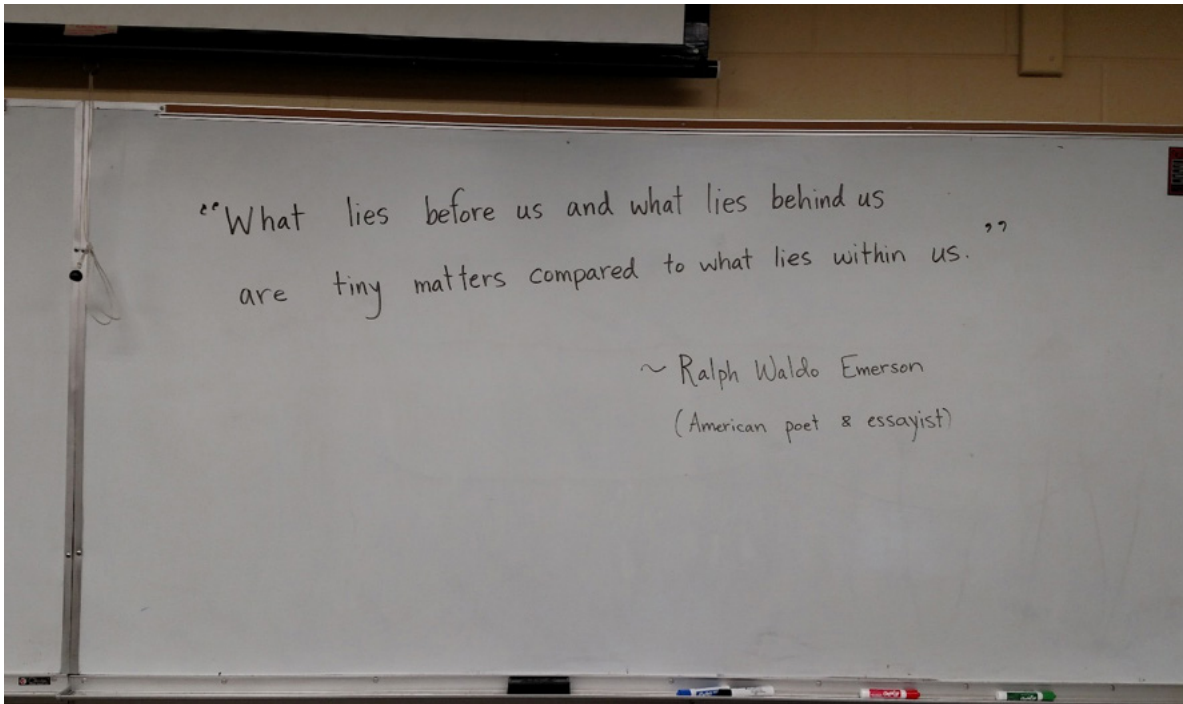 “What lies before us and what lies behind us
are tiny matters compared to what lies within us.”
~ Ralph Waldo Emerson
(American poet & essayist)